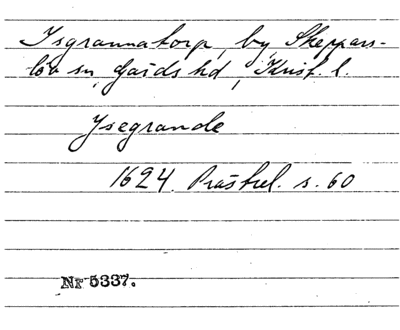 Isgrannatorp, by, Skeppars-
löv sn, Gärds hd, Krist. l.
Ysegrande
1624. Prästrel. s. 60
Nr 5337.